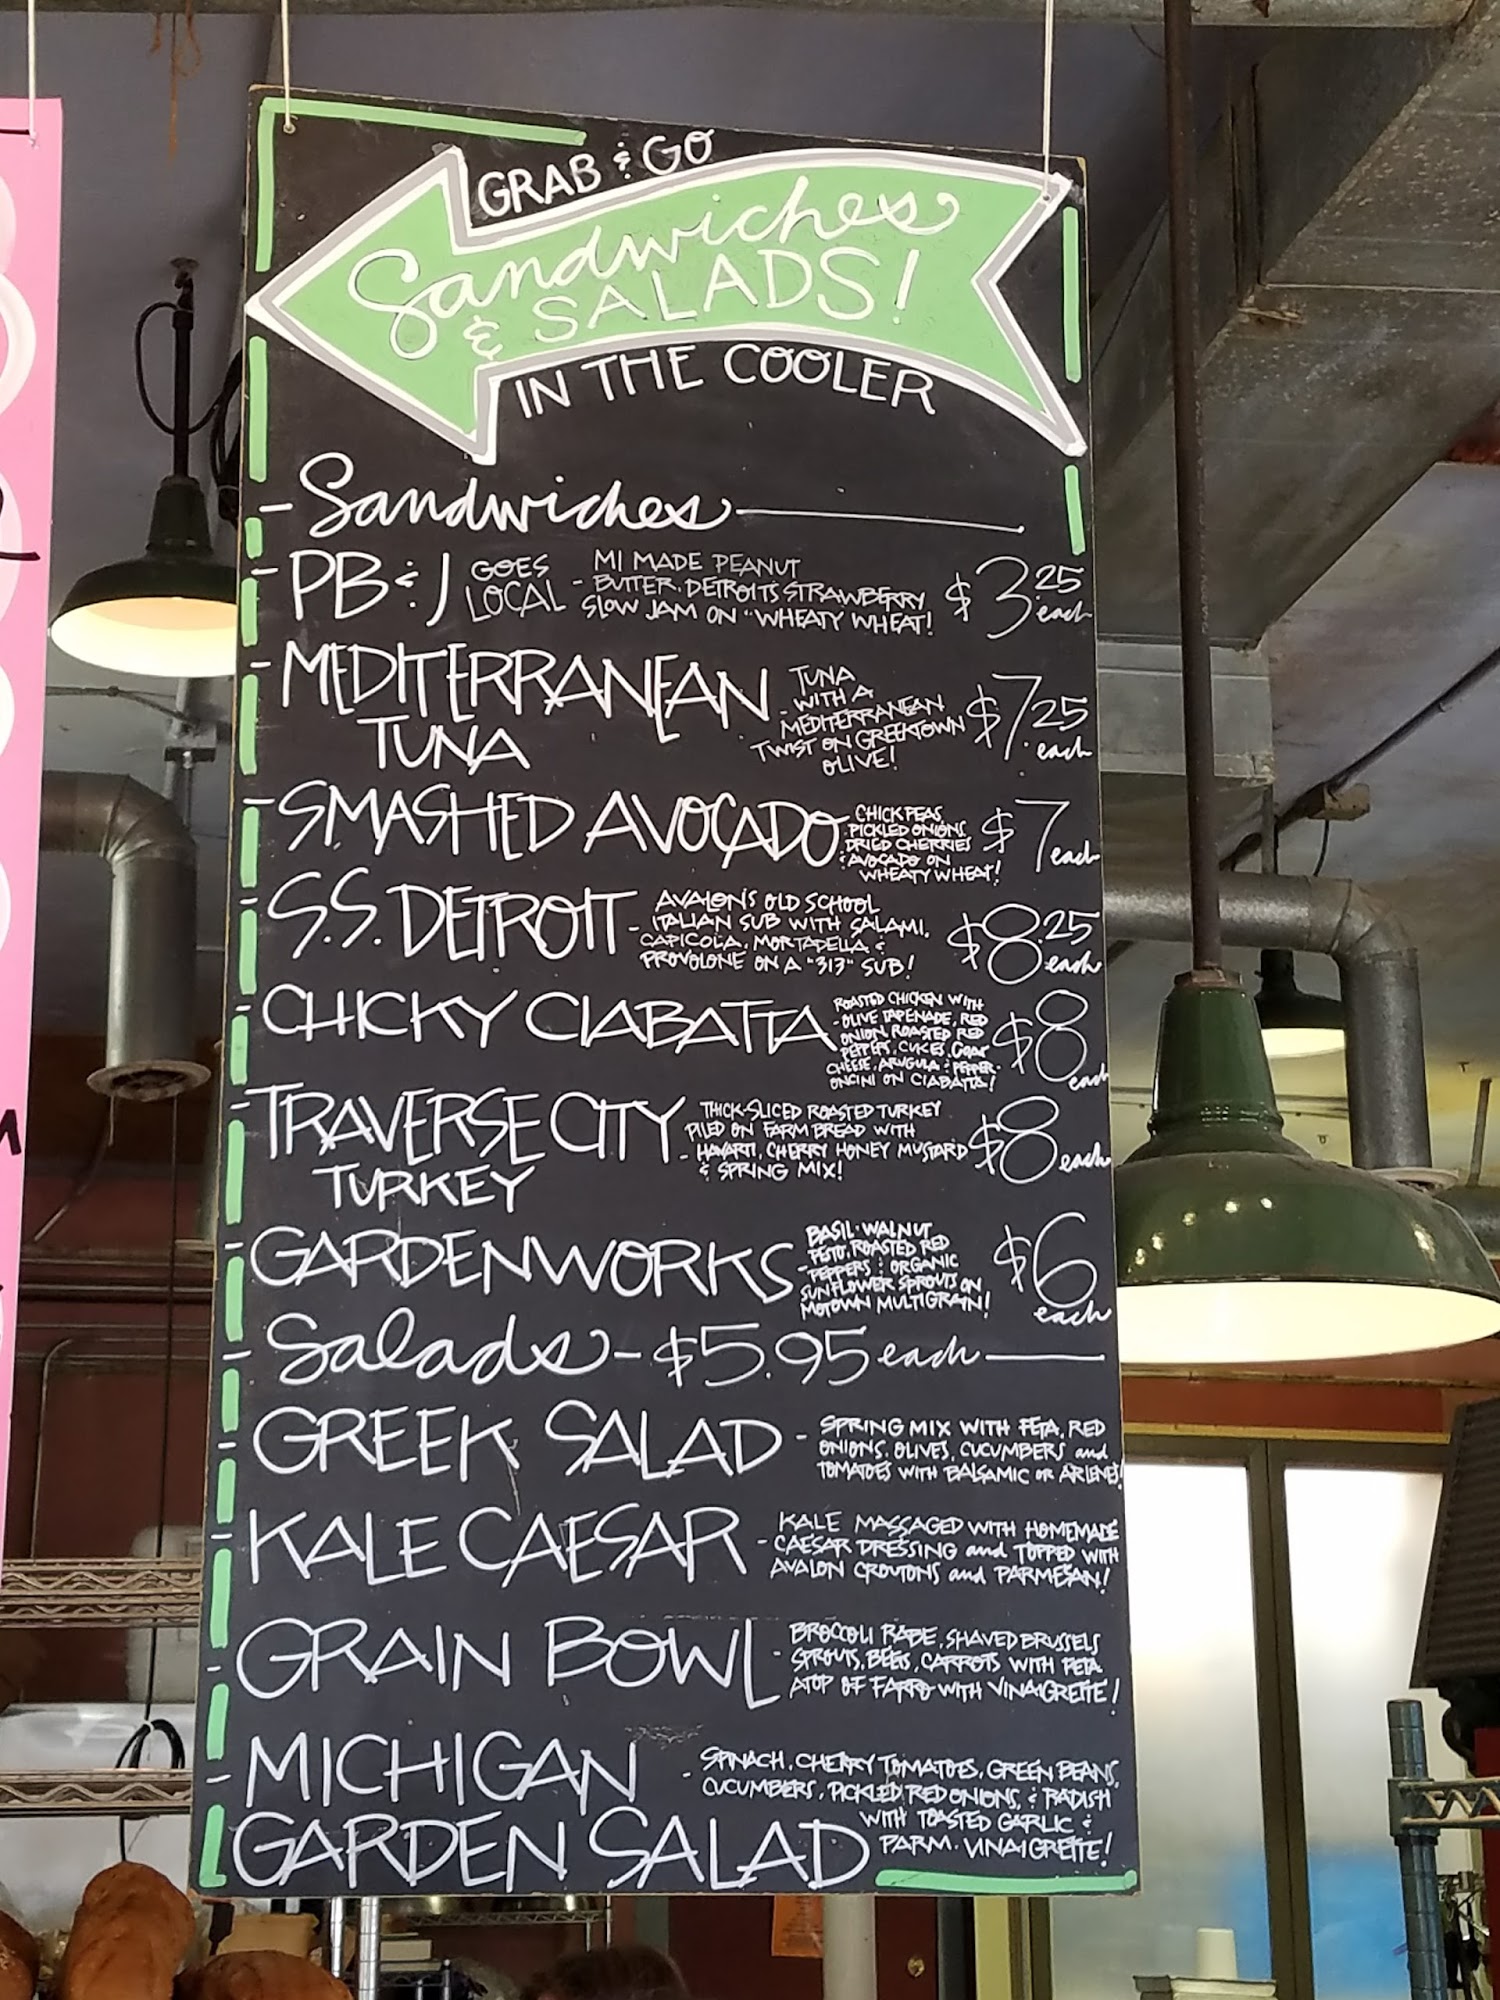 GRAB & GO
Sandwiches
& SALADS!
IN THE COOLER
- Sandwiches
- PB & J GOES LOCAL - MI MADE PEANUT
BUTTER, DETROIT'S STRAWBERRY
SLOW JAM ON "WHEATY WHEAT! $3.25 each
- MEDITERRANEAN
TUNA
- TUNA
WITH A
MEDITERRANEAN
TWIST ON GREEKTOWN
OLIVE! $7.25 each
- SMASHED AVOCADO
- CHICK PEAS,
PICKLED ONIONS
DRIED CHERRIES
& AVOCADO ON
WHEATY WHEAT! $7 each
- S.S. DETROIT
- AVALON'S OLD SCHOOL
ITALIAN SUB WITH SALAMI,
CAPICOLA, MORTADELLA &
PROVOLONE ON A "313" SUB! $8.25 each
- CHICKY CIABATTA
- ROASTED CHICKEN WITH
OLIVE TAPENADE, RED
ONION, ROASTED RED
PEPPERS, CUKES, GOAT
CHEESE, ARUGULA & PEPPER-
ONCINI ON CIABATTA! $8 each
- TRAVERSE CITY
TURKEY
- THICK-SLICED ROASTED TURKEY
PILED ON FARM BREAD WITH
HAVARTI, CHERRY HONEY MUSTARD
& SPRING MIX! $8 each
- GARDENWORKS
- BASIL-WALNUT
PESTO, ROASTED RED
PEPPERS & ORGANIC
SUNFLOWER SPROUTS ON
MOTOWN MULTIGRAIN! $6 each
- Salads - $5.95 each
- GREEK SALAD
- SPRING MIX WITH FETA, RED
ONIONS, OLIVES, CUCUMBERS and
TOMATOES WITH BALSAMIC OR ARLENE'S!
- KALE CAESAR
- KALE MASSAGED WITH HOMEMADE
CAESAR DRESSING and TOPPED WITH
AVALON CROUTONS and PARMESAN!
- GRAIN BOWL
- BROCCOLI RABE, SHAVED BRUSSELS
SPROUTS, BEETS, CARROTS WITH FETA
ATOP OF FARRO WITH VINAIGRETTE!
- MICHIGAN
GARDEN SALAD
- SPINACH, CHERRY TOMATOES, GREEN BEANS,
CUCUMBERS, PICKLED RED ONIONS, & RADISH
WITH TOASTED GARLIC &
PARM. VINAIGRETTE!